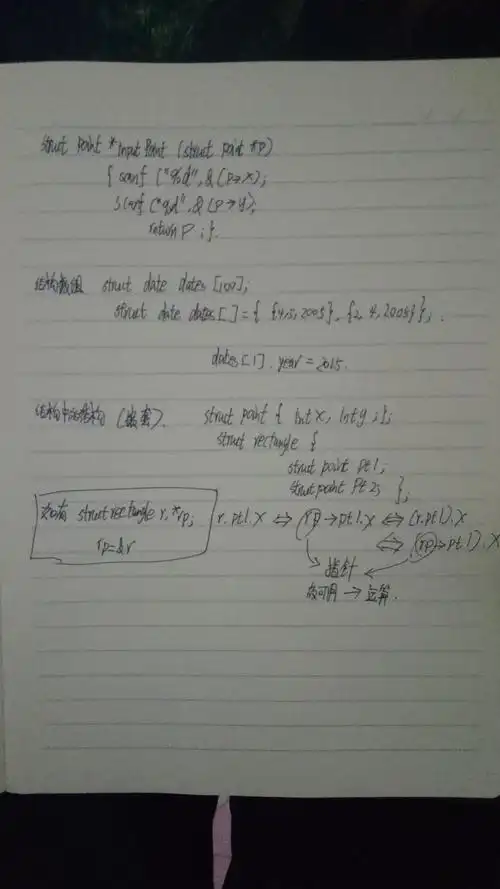 struct point *Input Point (struct point *p)
{ scanf ("%d", &(p→x);
scanf ("%d", &(p→y);
return p ; }.
结构数组 struct date dates [100];
struct date dates [ ] = { {4,5,2005}, {2, 4, 2005} };
dates [1]. year = 2015.
结构中的结构 (嵌套). struct point { int x, int y ; };
struct rectangle {
struct point pt1;
struct point pt2; };
如有 struct rectangle r, *rp;
rp=&r
r. pt1.x ⇔ rp→pt1.x ⇔ (r.pt1).x
⇔ (rp→pt1).x
指针
故可用 → 运算.